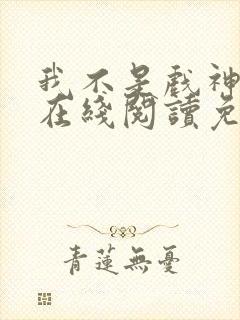 我不是戲神
在綫閱讀免
青蓮無憂